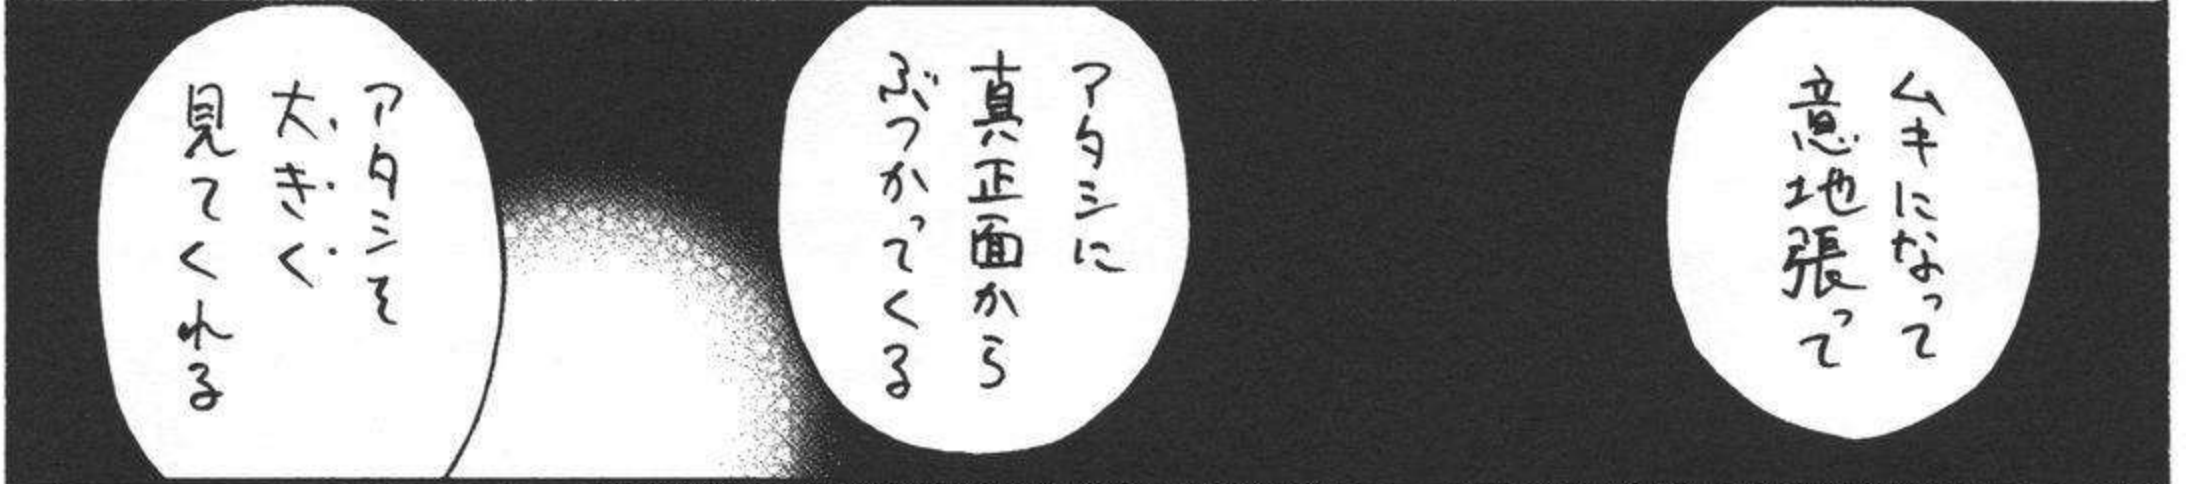 ムキになって
意地張って
アタシに
真正面から
ぶつかってくる
アタシを
大きく
見てくれる